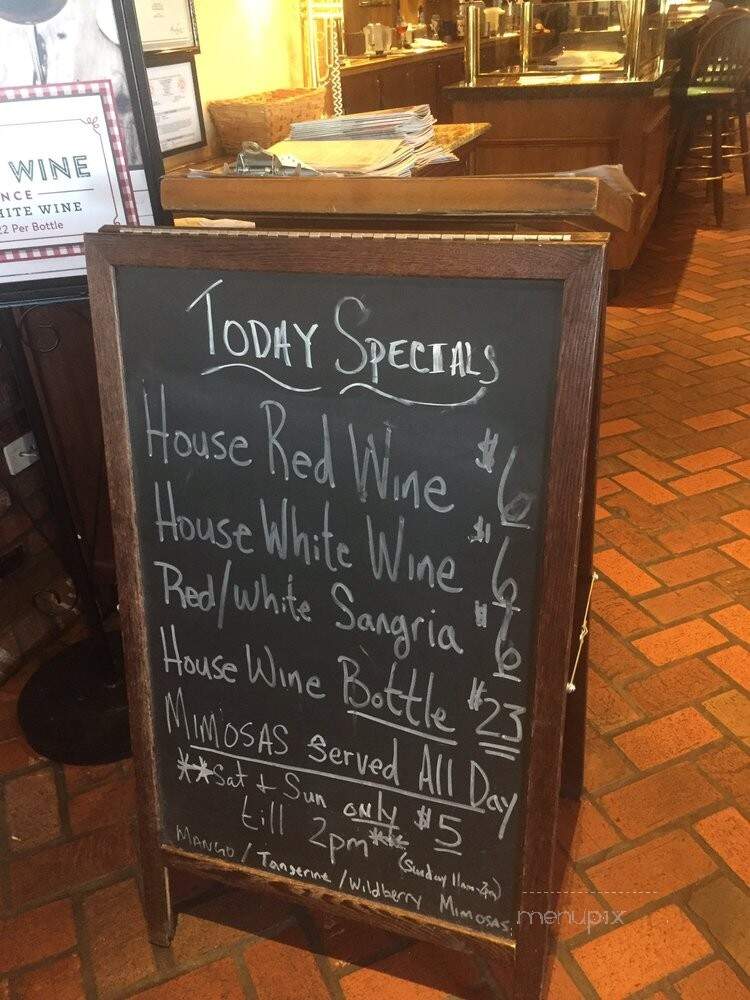 WINE
NCE
HITE WINE
22 Per Bottle
TODAY SPECIALS
House Red Wine $6
House White Wine $6
Red/White Sangria $6
House Wine Bottle $23
MIMOSAS Served All Day
**Sat + Sun only $5
till 2pm** (Sunday 11am-2pm)
MANGO / Tangerine / Wildberry MIMOSAS
menupix